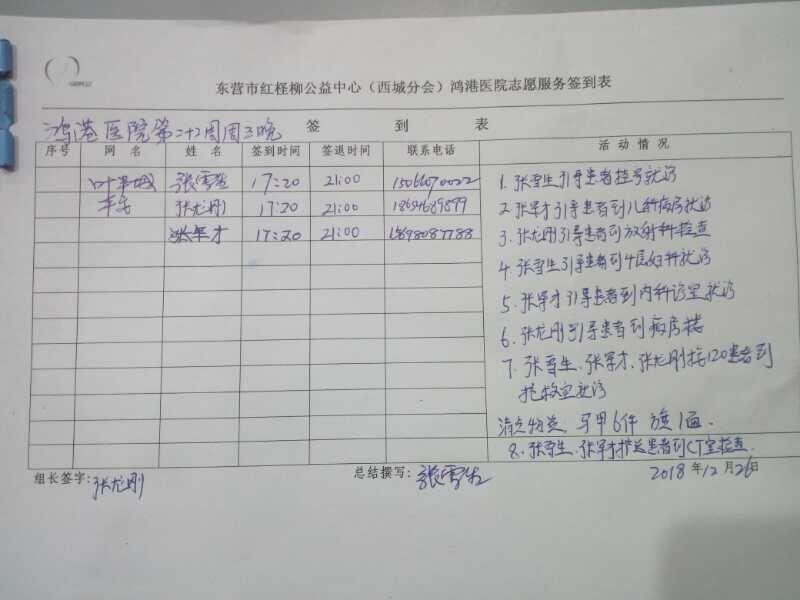 东营市红柽柳公益中心（西城分会）鸿港医院志愿服务签到表
鸿港医院第二十2周周三晚 签 到 表
序号 网 名 姓 名 签到时间 签退时间 联系电话 活 动 情 况
张雪生 17:20 21:00
张龙刚 17:20 21:00
张军才 17:20 21:00
1. 张雪生引导患者挂号就诊
2. 张军才引导患者到儿科病房就诊
3. 张龙刚引导患者到放射科检查
4. 张雪生引导患者到4层妇科就诊
5. 张军才引导患者到内科诊室就诊
6. 张龙刚引导患者到病房楼
7. 张雪生、张军才、张龙刚接120患者到
抢救室就诊
清点物资, 马甲6件 旗1面.
8. 张雪生、张军才护送患者到CT室检查.
组长签字: 张龙刚 总结撰写: 张雪生 2018年12月26日